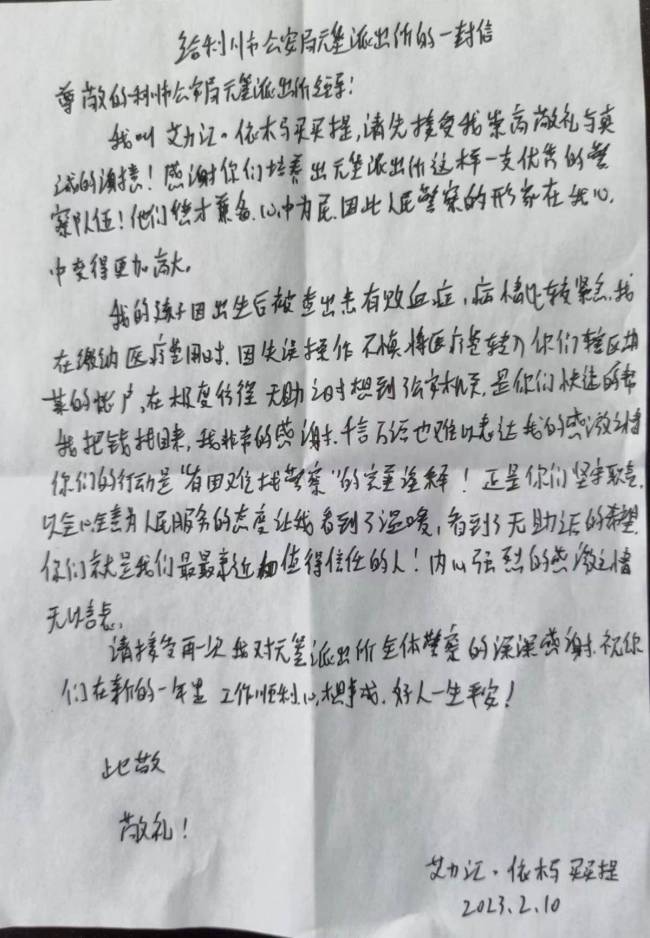 给利川市公安局元堡派出所的一封信
尊敬的利川市公安局元堡派出所领导!
我叫艾力江·依木马买买提,请先接受我崇高敬礼与真
诚的谢意!感谢你们培养出元堡派出所这样一支优秀的警
察队伍!他们德才兼备、心中为民,因此人民警察的形象在我心
中变得更加高大。
我的孩子因出生后被查出患有败血症,病情比较紧急,我
在缴纳医疗费用时,因失误操作不慎将医疗费转入你们辖区内
某的帐户,在极度彷徨无助之时想到了公安机关,是你们快速的帮
我把钱找回来,我非常的感谢,千言万语也难以表达我的感激之情
你们的行动是“有困难找警察”的完美诠释!正是你们坚守职责,
以全心全意为人民服务的态度让我看到了温暖,看到了无助后的希望
你们就是我们最最亲近和值得信任的人!内心强烈的感激之情
无以言表。
请接受再一次我对元堡派出所全体警察的深深感谢,祝你
们在新的一年里工作顺利,心想事成,好人一生平安!
此致
敬礼!
艾力江·依木马买买提
2023.2.10